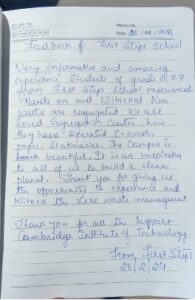 Memo No.
Date 26/02/24
Feedback of First Steps School
Very informative and amazing
experience. Students of grade 6,7,8
from First Step school experienced
Hands on and witnessed How
waste are segregated. We are
loved Segregation Centre, how
they have separated E-waste,
paper, stationaries. The campus is
beautiful. It is an inspiration
to all of us to build a clean
planet. Thank you for giving us
the opportunity to experience and
witness the Zero waste management
Thank you for all the support
Cambridge Institute of Technology.
from First Steps
26/2/24